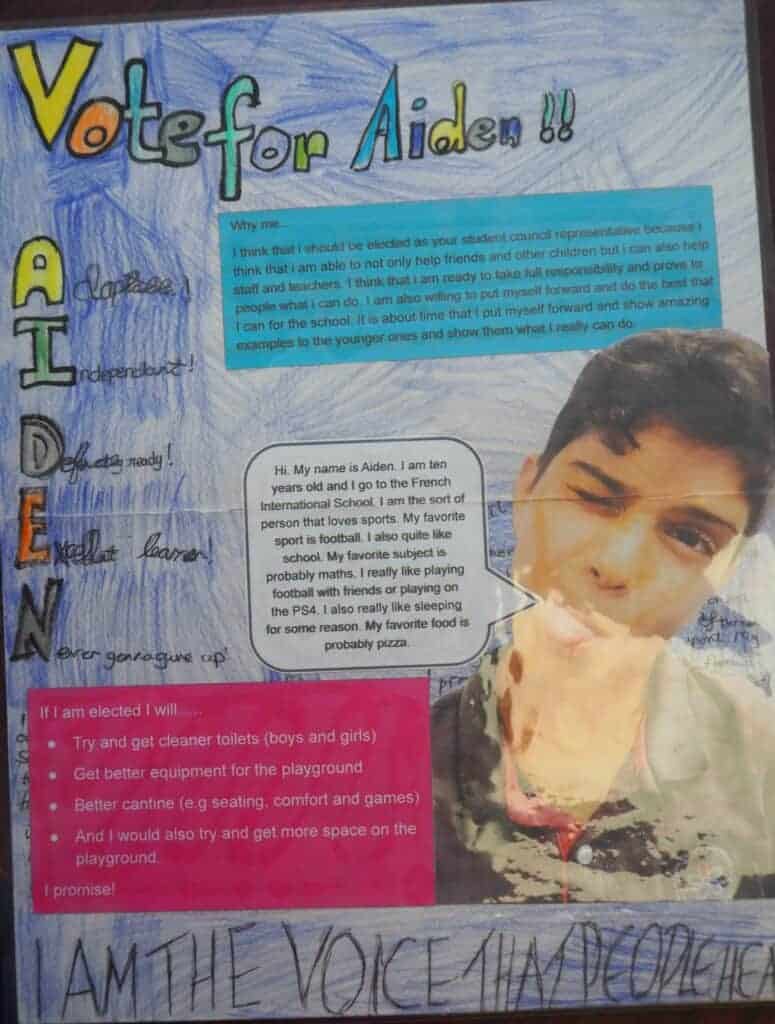 Vote for Aiden !!
Why me...
I think that I should be elected as your student council representative because I
think that i am able to not only help friends and other children but i can also help
staff and teachers. I think that i am ready to take full responsibility and prove to
people what i can do. I am also willing to put myself forward and do the best that
I can for the school. It is about time that I put myself forward and show amazing
examples to the younger ones and show them what I really can do.
A
Independant!
Definetely ready!
Excellent learner!
Never gonna give up!
Hi. My name is Aiden. I am ten
years old and I go to the French
International School. I am the sort of
person that loves sports. My favorite
sport is football. I also quite like
school. My favorite subject is
probably maths. I really like playing
football with friends or playing on
the PS4. I also really like sleeping
for some reason. My favorite food is
probably pizza.
If I am elected I will......
● Try and get cleaner toilets (boys and girls)
● Get better equipment for the playground
● Better cantine (e.g seating, comfort and games)
● And I would also try and get more space on the
playground.
I promise!
I AM THE VOICE THAT PEOPLE HEA